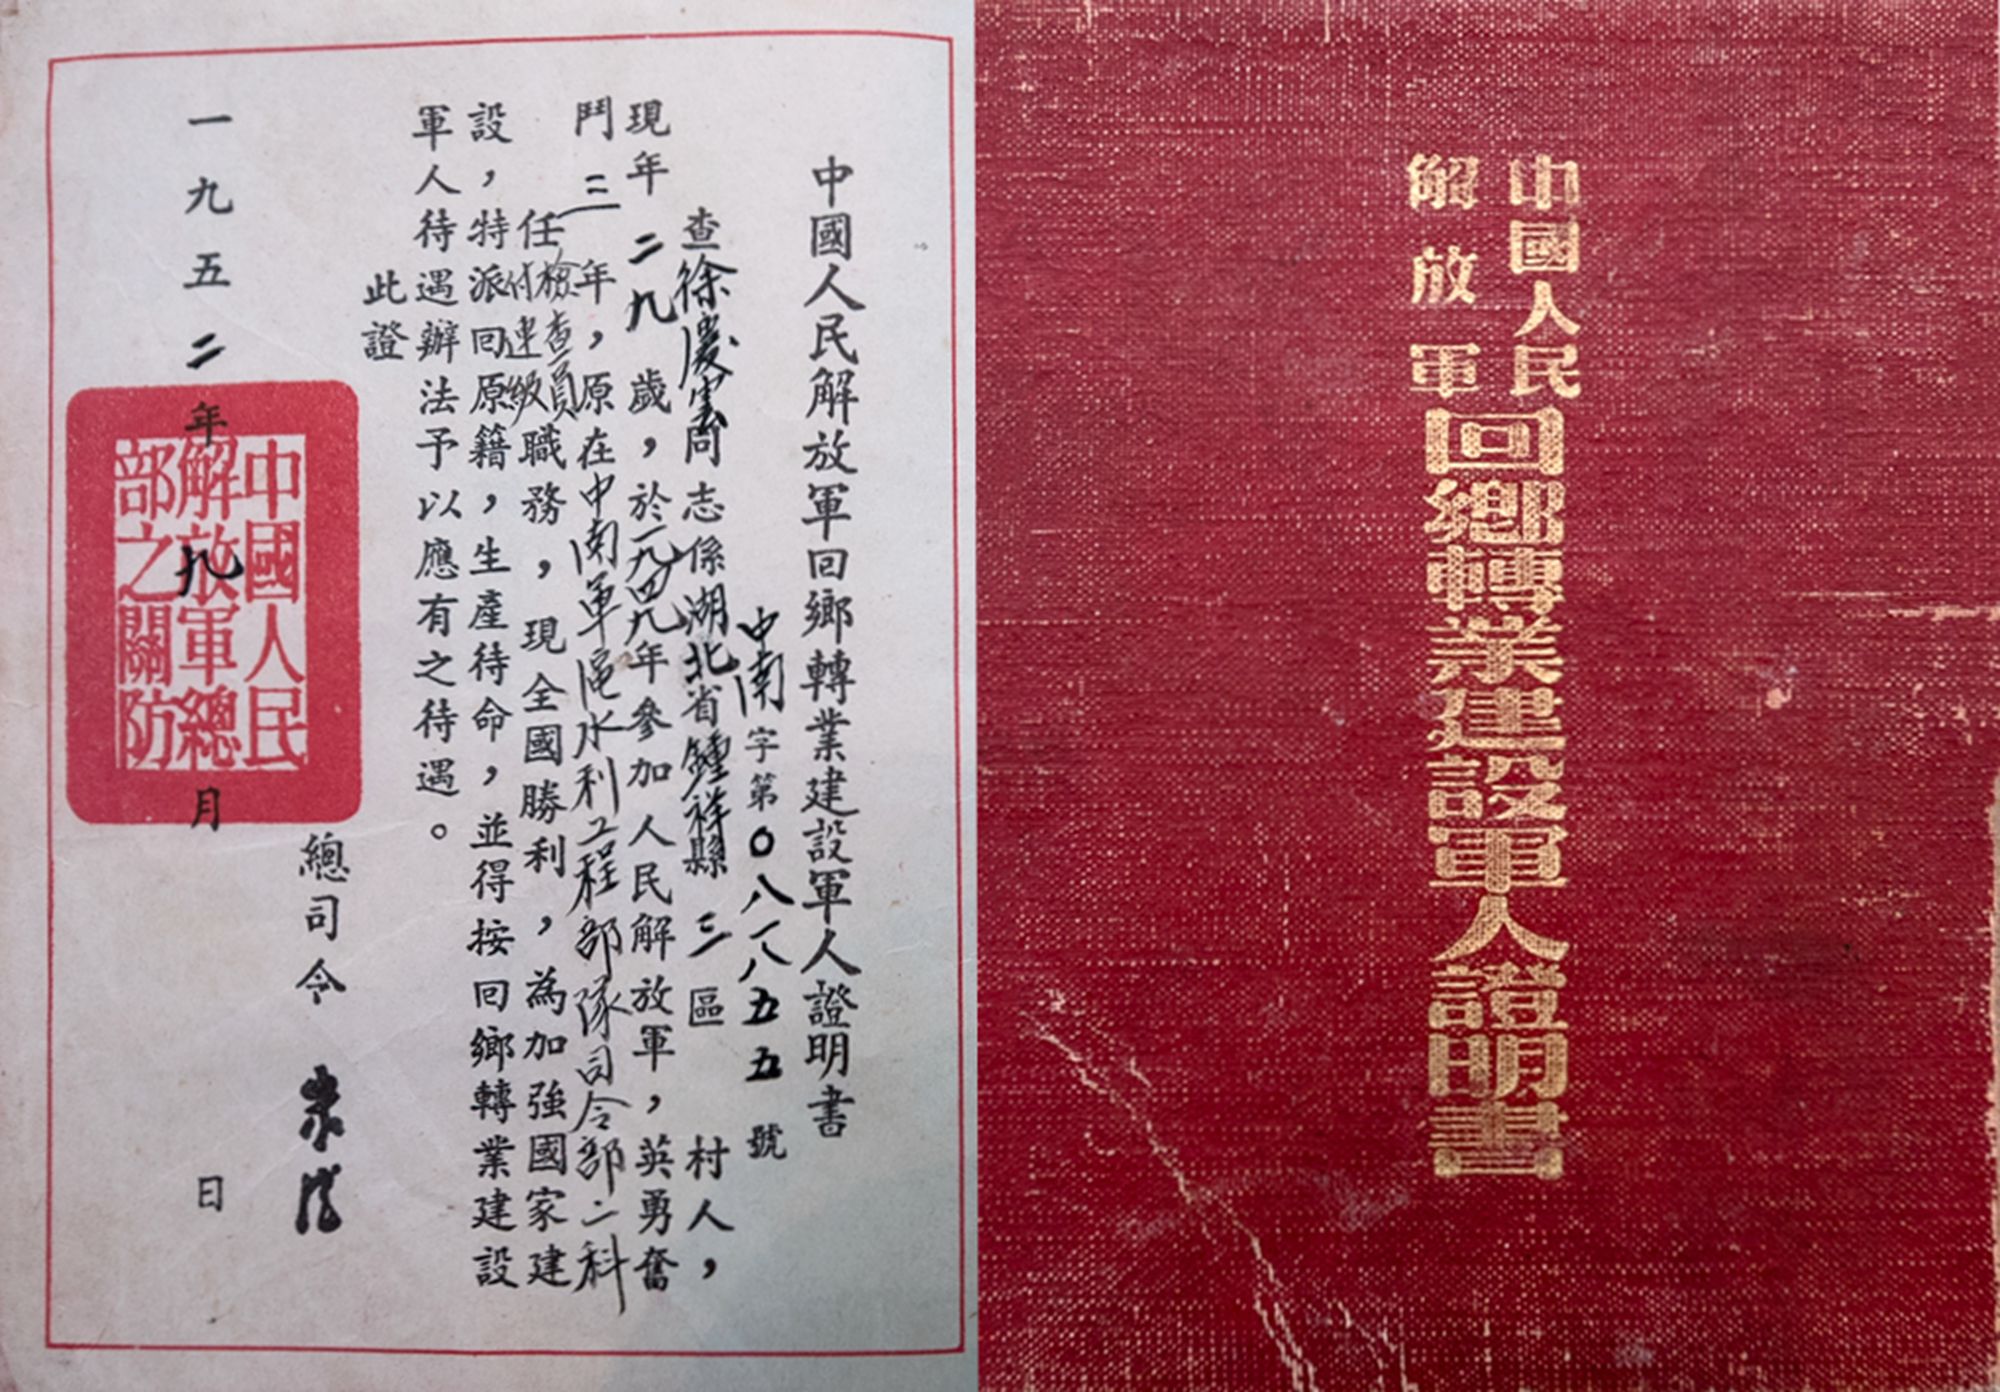 中國人民
解放軍
回鄉轉業建設軍人證明書
中國人民解放軍回鄉轉業建設軍人證明書
中南字第〇八八八五五號
查徐慶憲同志係湖北省鍾祥縣三區 村人，
現年二九歲，於一九四九年參加人民解放軍，英勇奮
鬥三年，原在中南軍區水利工程部隊司令部二科
任檢查員付連級職務，現全國勝利，為加強國家建
設，特派回原籍，生產待命，並得按回鄉轉業建設
軍人待遇辦法予以應有之待遇。
此證
總司令 朱德
一九五二年九月 日
中國人民
解放軍總
部之關防